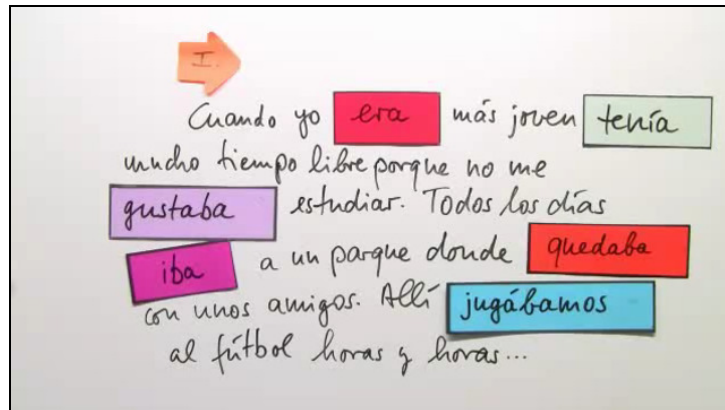 I.
Cuando yo era más joven tenía
mucho tiempo libre porque no me
gustaba estudiar. Todos los días
iba a un parque donde quedaba
con unos amigos. Allí jugábamos
al fútbol horas y horas...